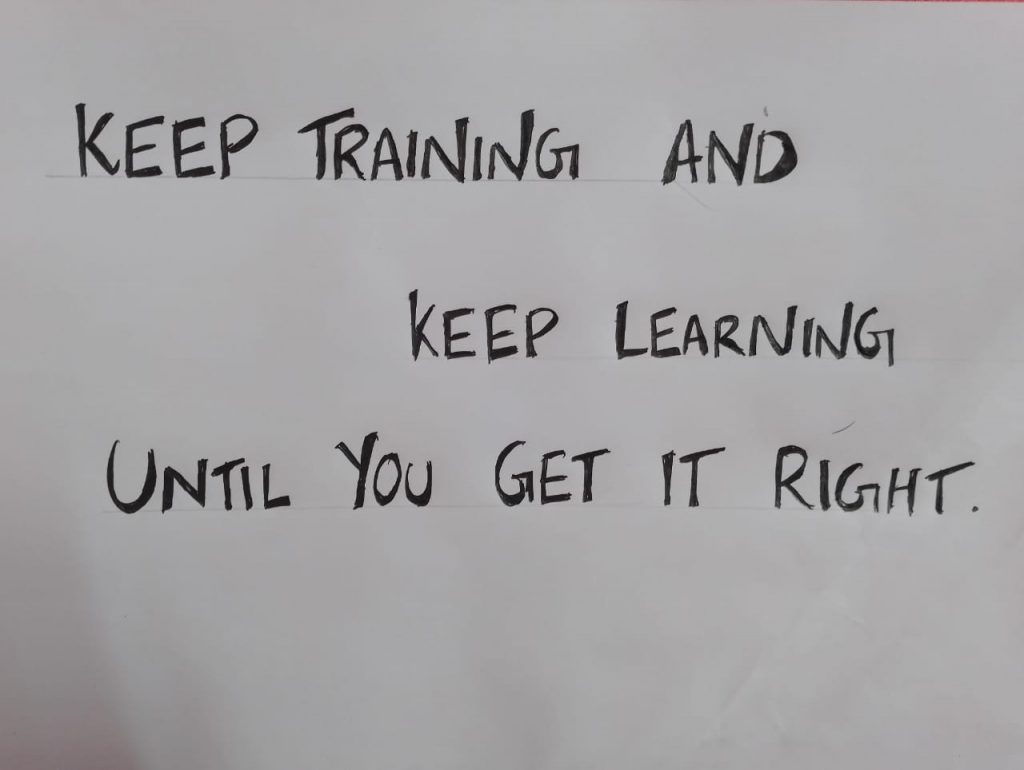 KEEP TRAINING AND
KEEP LEARNING
UNTIL YOU GET IT RIGHT.